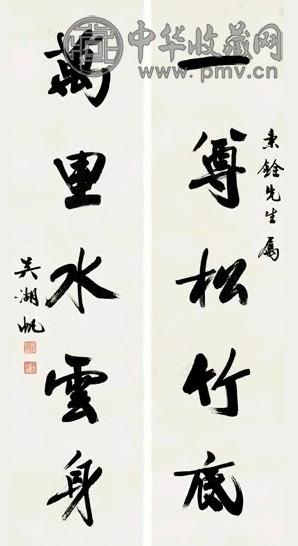 中华收藏网
www.pmv.cn
秉銓先生屬
一尊松竹底
萬里水雲身
吳湖帆